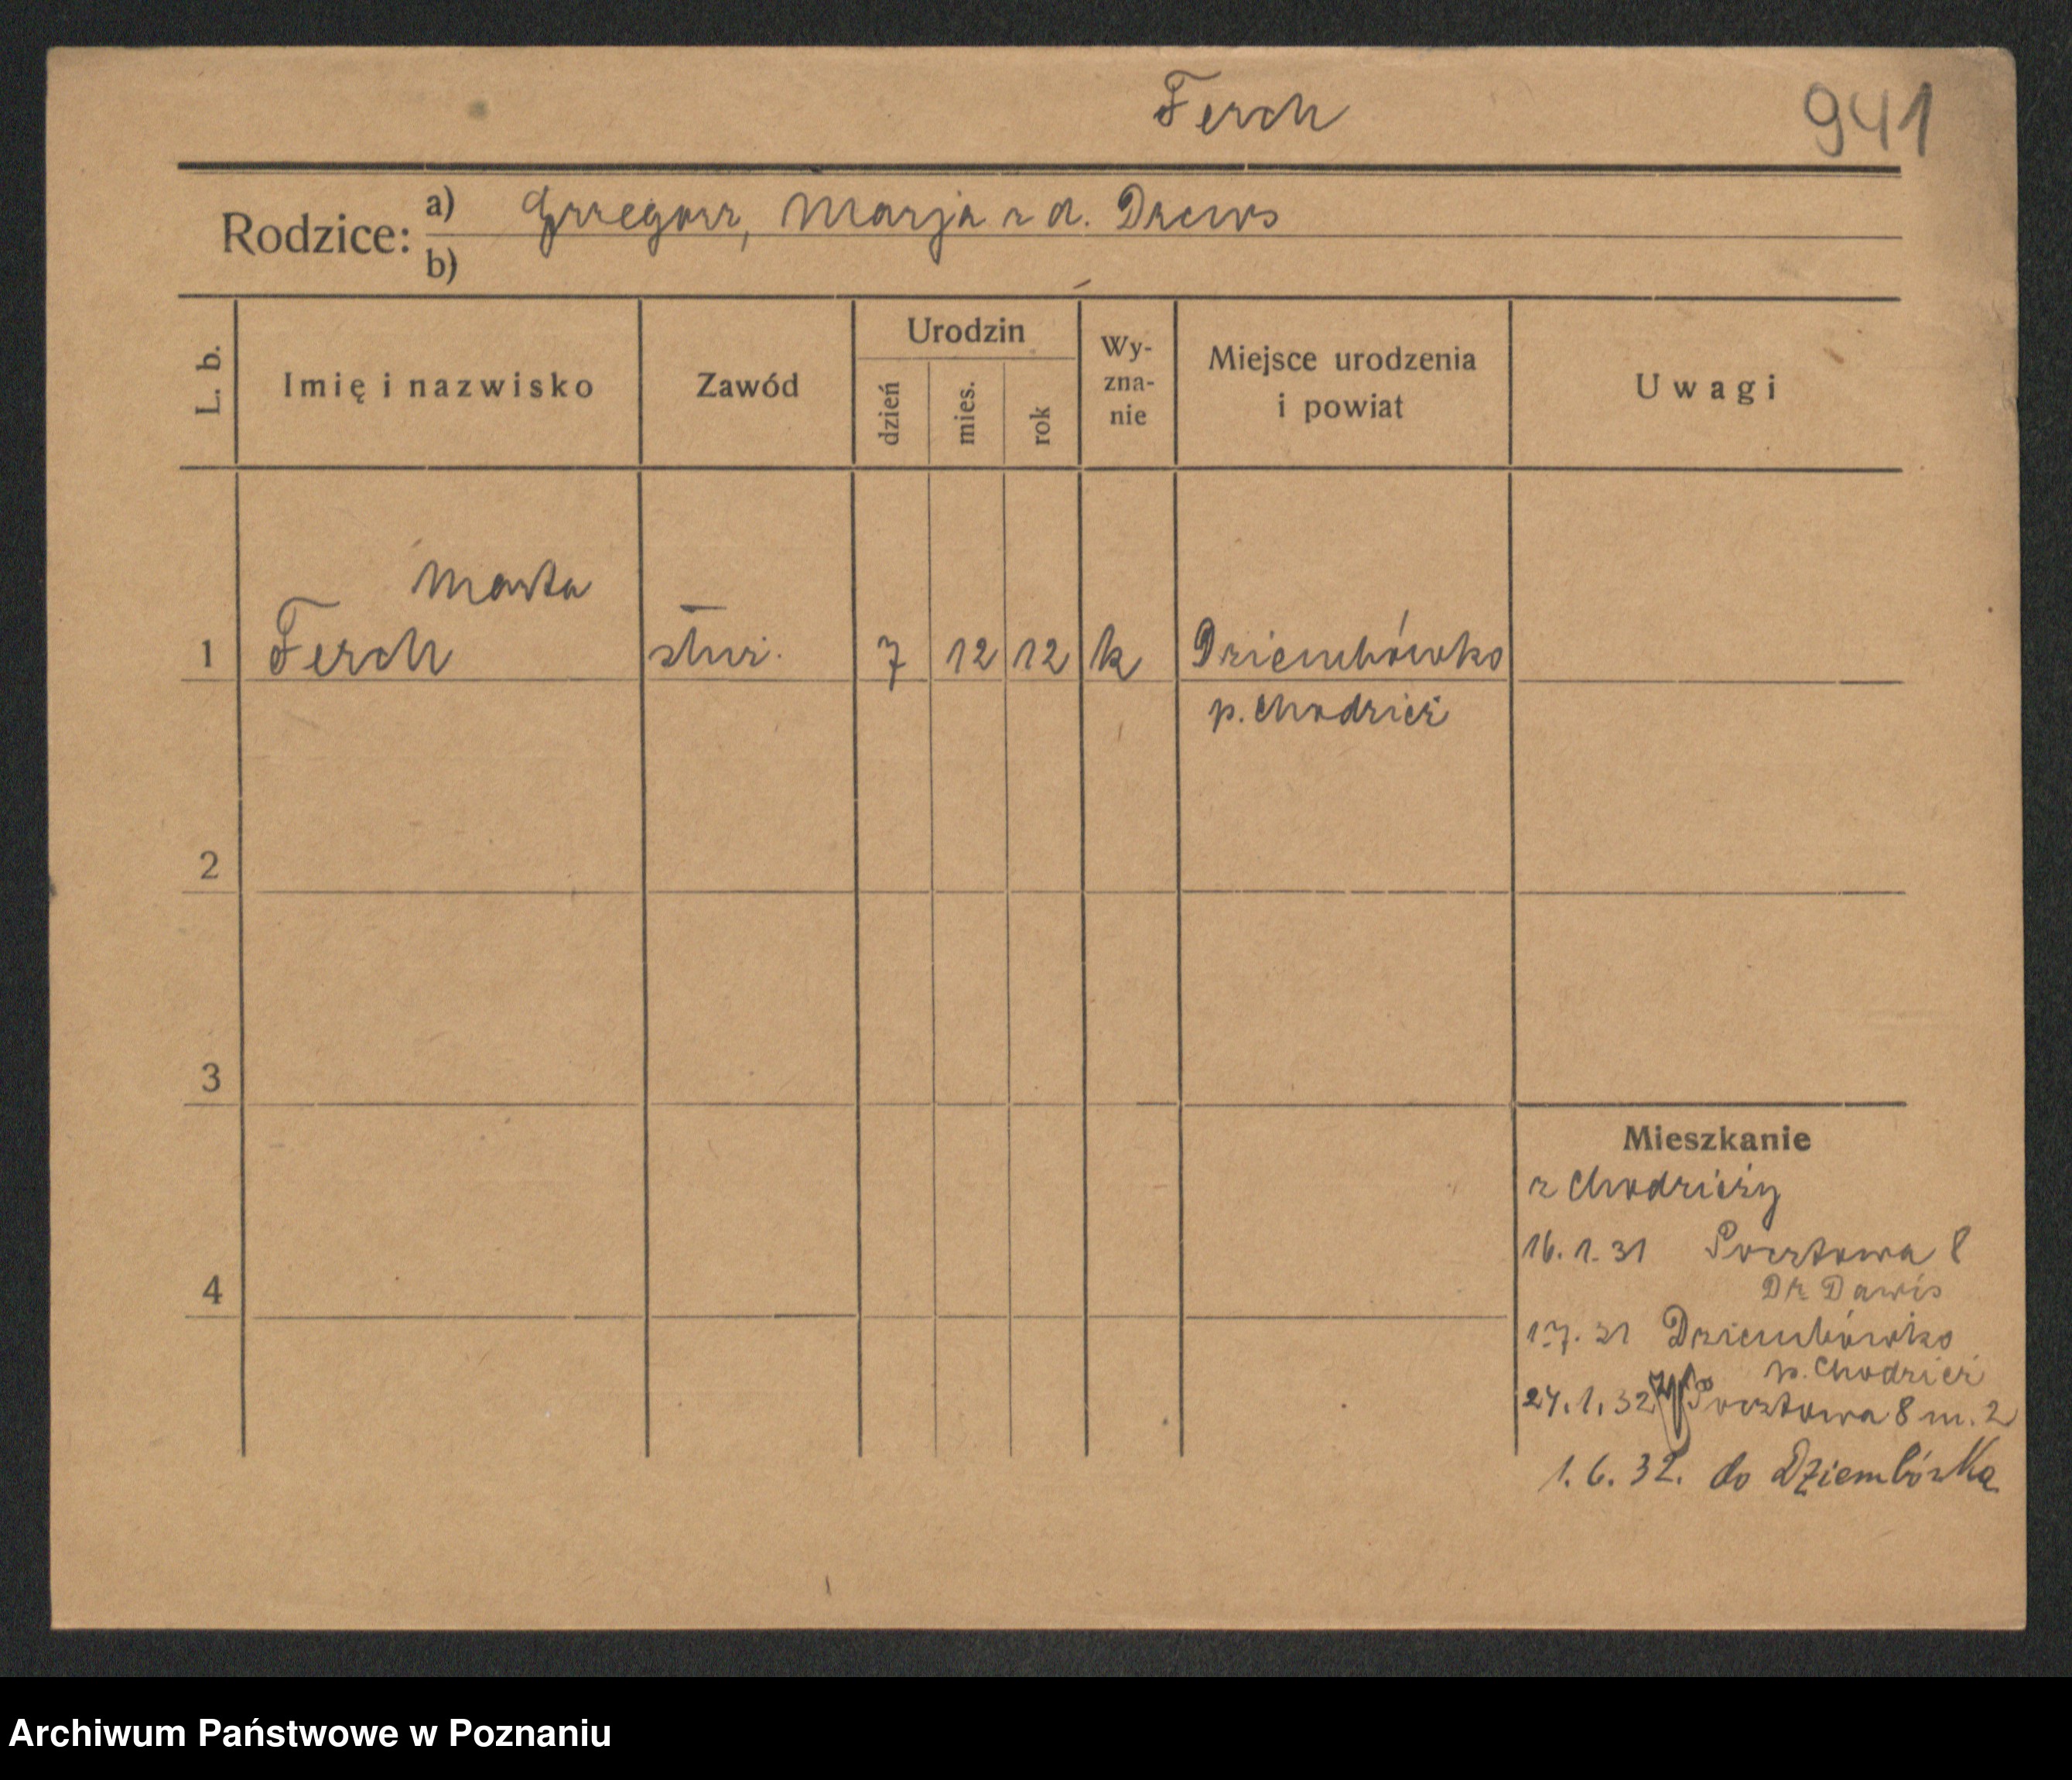 Ferch
941
Rodzice: a) Grzegorz, Marja z d. Drews
b)
L. b. Imię i nazwisko Zawód Urodzin dzień mies. rok Wy-zna-nie Miejsce urodzenia i powiat Uwagi
Marta
1 Ferch służ. 7 12 12 k Dziembówko
p. Chodzież
2
3
Mieszkanie
z Chodzieży
16. 1. 31 Pocztowa 8
Dr Dawis
4
1.7. 31 Dziembówko
p. Chodzież
24.1.32 Pocztowa 8 m. 2
1. 6. 32. do Dziembówka
Archiwum Państwowe w Poznaniu